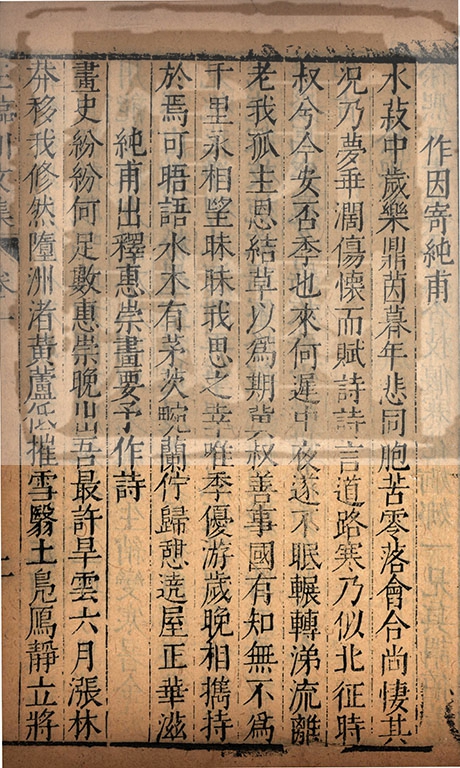 作因寄純甫
水菽中歲樂鼎茵暮年悲同胞苦零落會合尚悽其
况乃夢乖闊傷懷而賦詩詩言道路寒乃似北征時
叔兮今安否季也來何遲中夜遂不眠輾轉涕流離
老我孤主恩結草以為期冀叔善事國有知無不為
千里永相望昧昧我思之幸唯季優游歲晚相攜持
於焉可晤語水木有茅茨畹蘭佇歸憩遶屋正華滋
純甫出釋惠崇畫要予作詩
畫史紛紛何足數惠崇晚出吾最許旱雲六月漲林
莽移我修然墮洲渚黃蘆低摧雪翳土鳧鴈靜立將